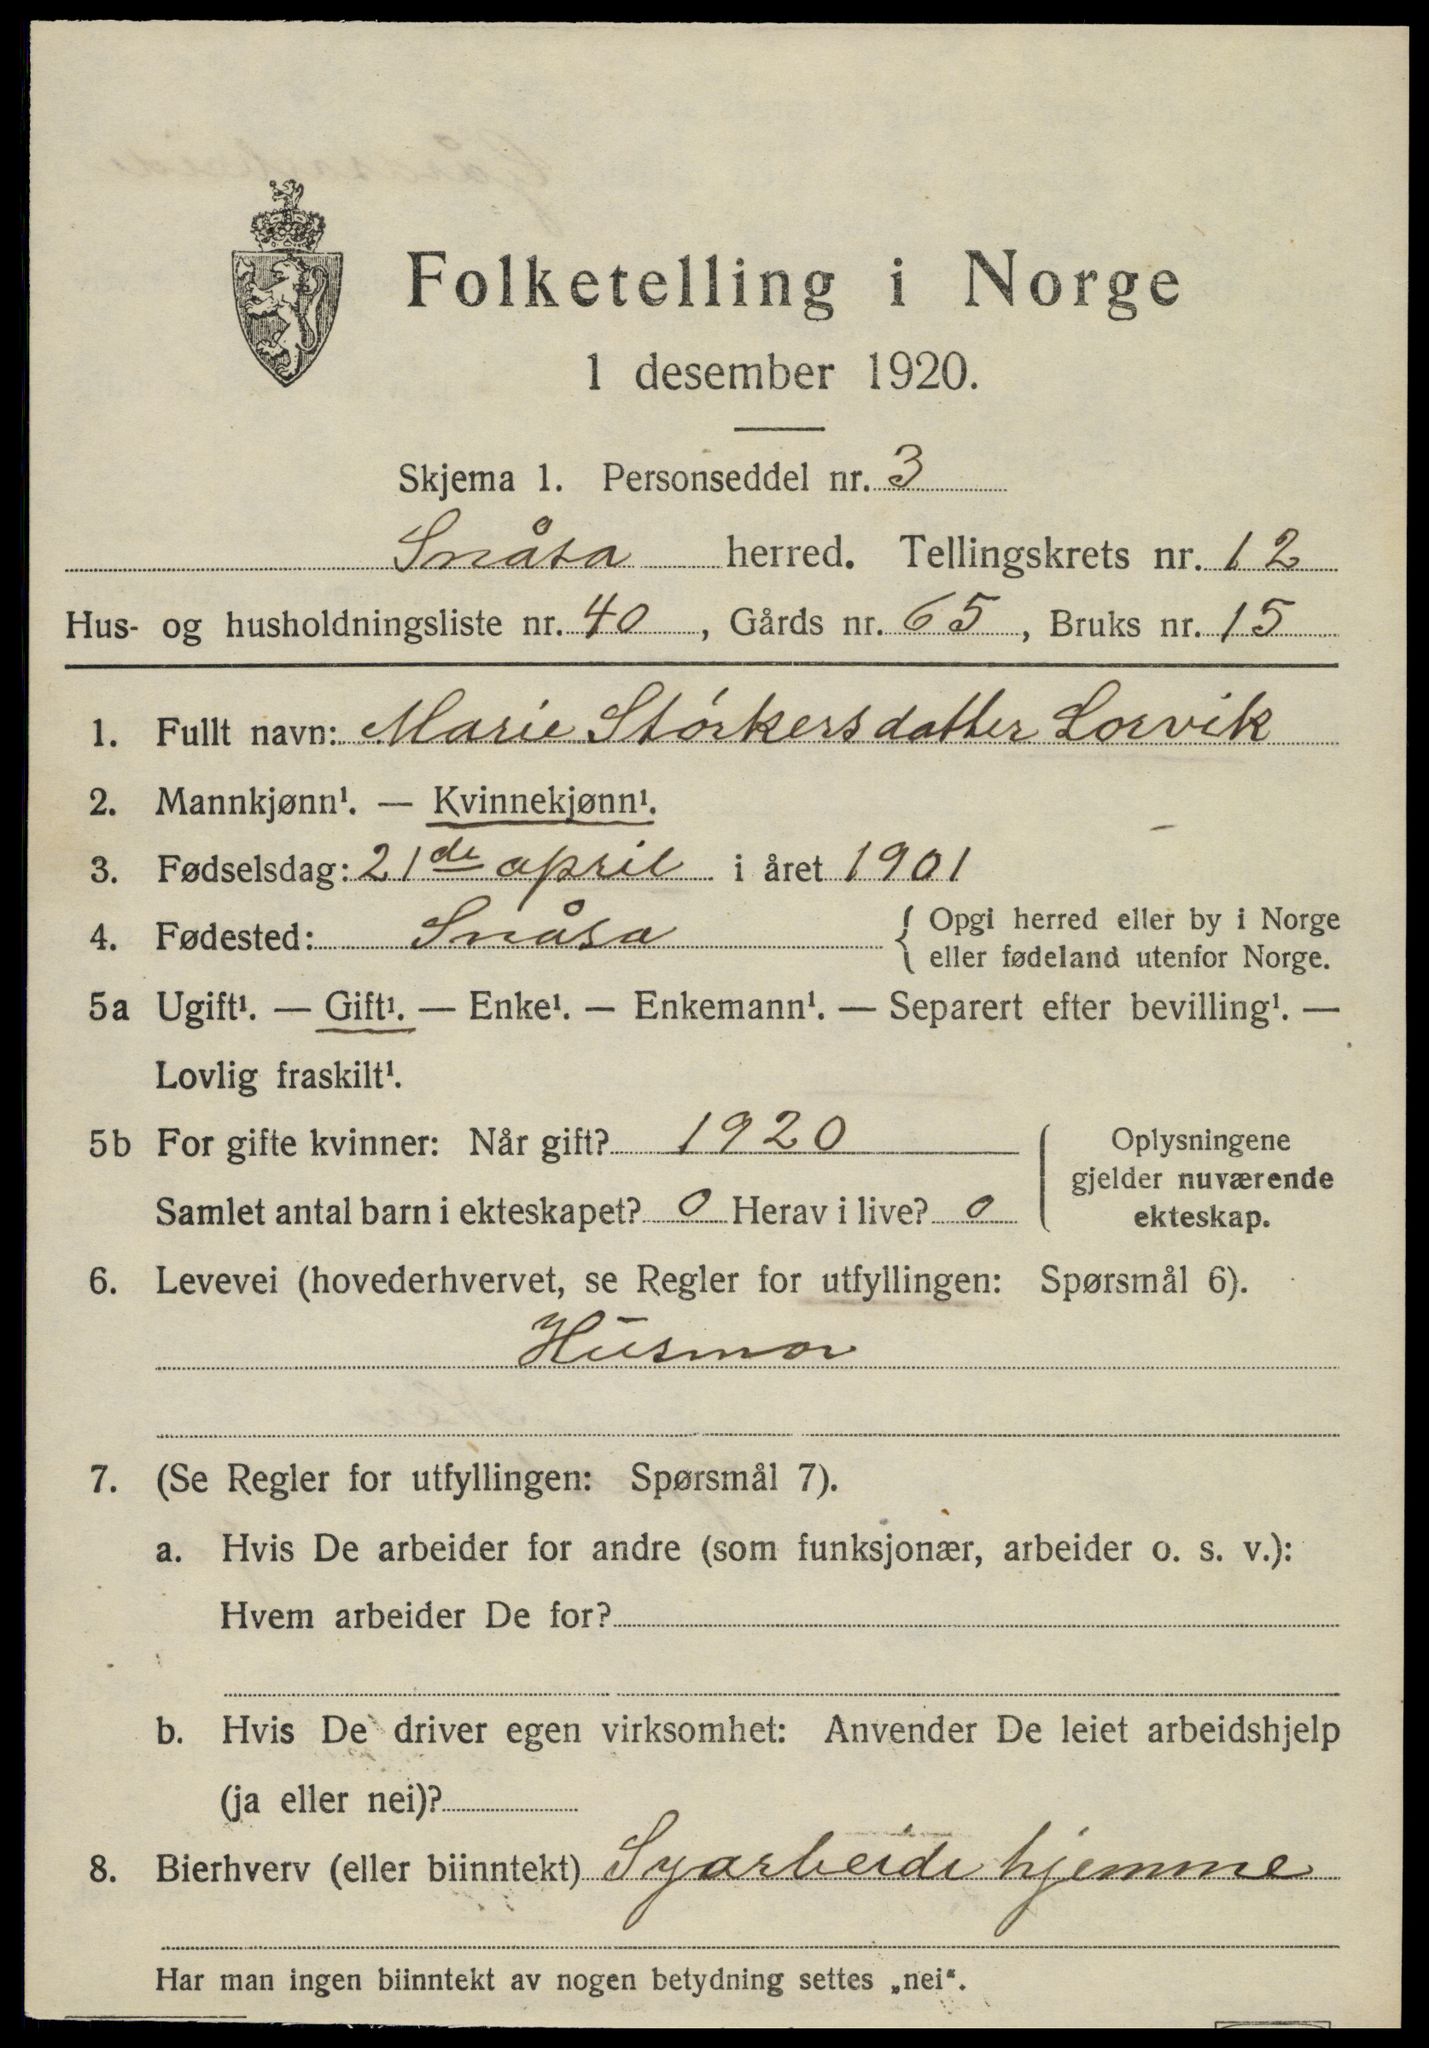 Folketelling i Norge
1 desember 1920.
Skjema 1. Personseddel nr. 3
Snåsa herred. Tellingskrets nr. 12
Hus- og husholdningsliste nr. 40, Gårds nr. 65, Bruks nr. 15
1. Fullt navn: Marie Størkersdatter Lorvik
2. Mannkjønn¹. — Kvinnekjønn¹.
3. Fødselsdag: 21de april i året 1901
4. Fødested: Snåsa { Opgi herred eller by i Norge
eller fødeland utenfor Norge.
5a Ugift¹. — Gift¹. — Enke¹. — Enkemann¹. — Separert efter bevilling¹. —
Lovlig fraskilt¹.
5b For gifte kvinner: Når gift? 1920
Samlet antal barn i ekteskapet? 0 Herav i live? 0
Oplysningene
gjelder nuværende
ekteskap.
6. Levevei (hovederhvervet, se Regler for utfyllingen: Spørsmål 6).
Husmor
7. (Se Regler for utfyllingen: Spørsmål 7).
a. Hvis De arbeider for andre (som funksjonær, arbeider o. s. v.):
Hvem arbeider De for?
b. Hvis De driver egen virksomhet: Anvender De leiet arbeidshjelp
(ja eller nei)?
8. Bierhverv (eller biinntekt) Syarbeide hjemme
Har man ingen biinntekt av nogen betydning settes „nei“.